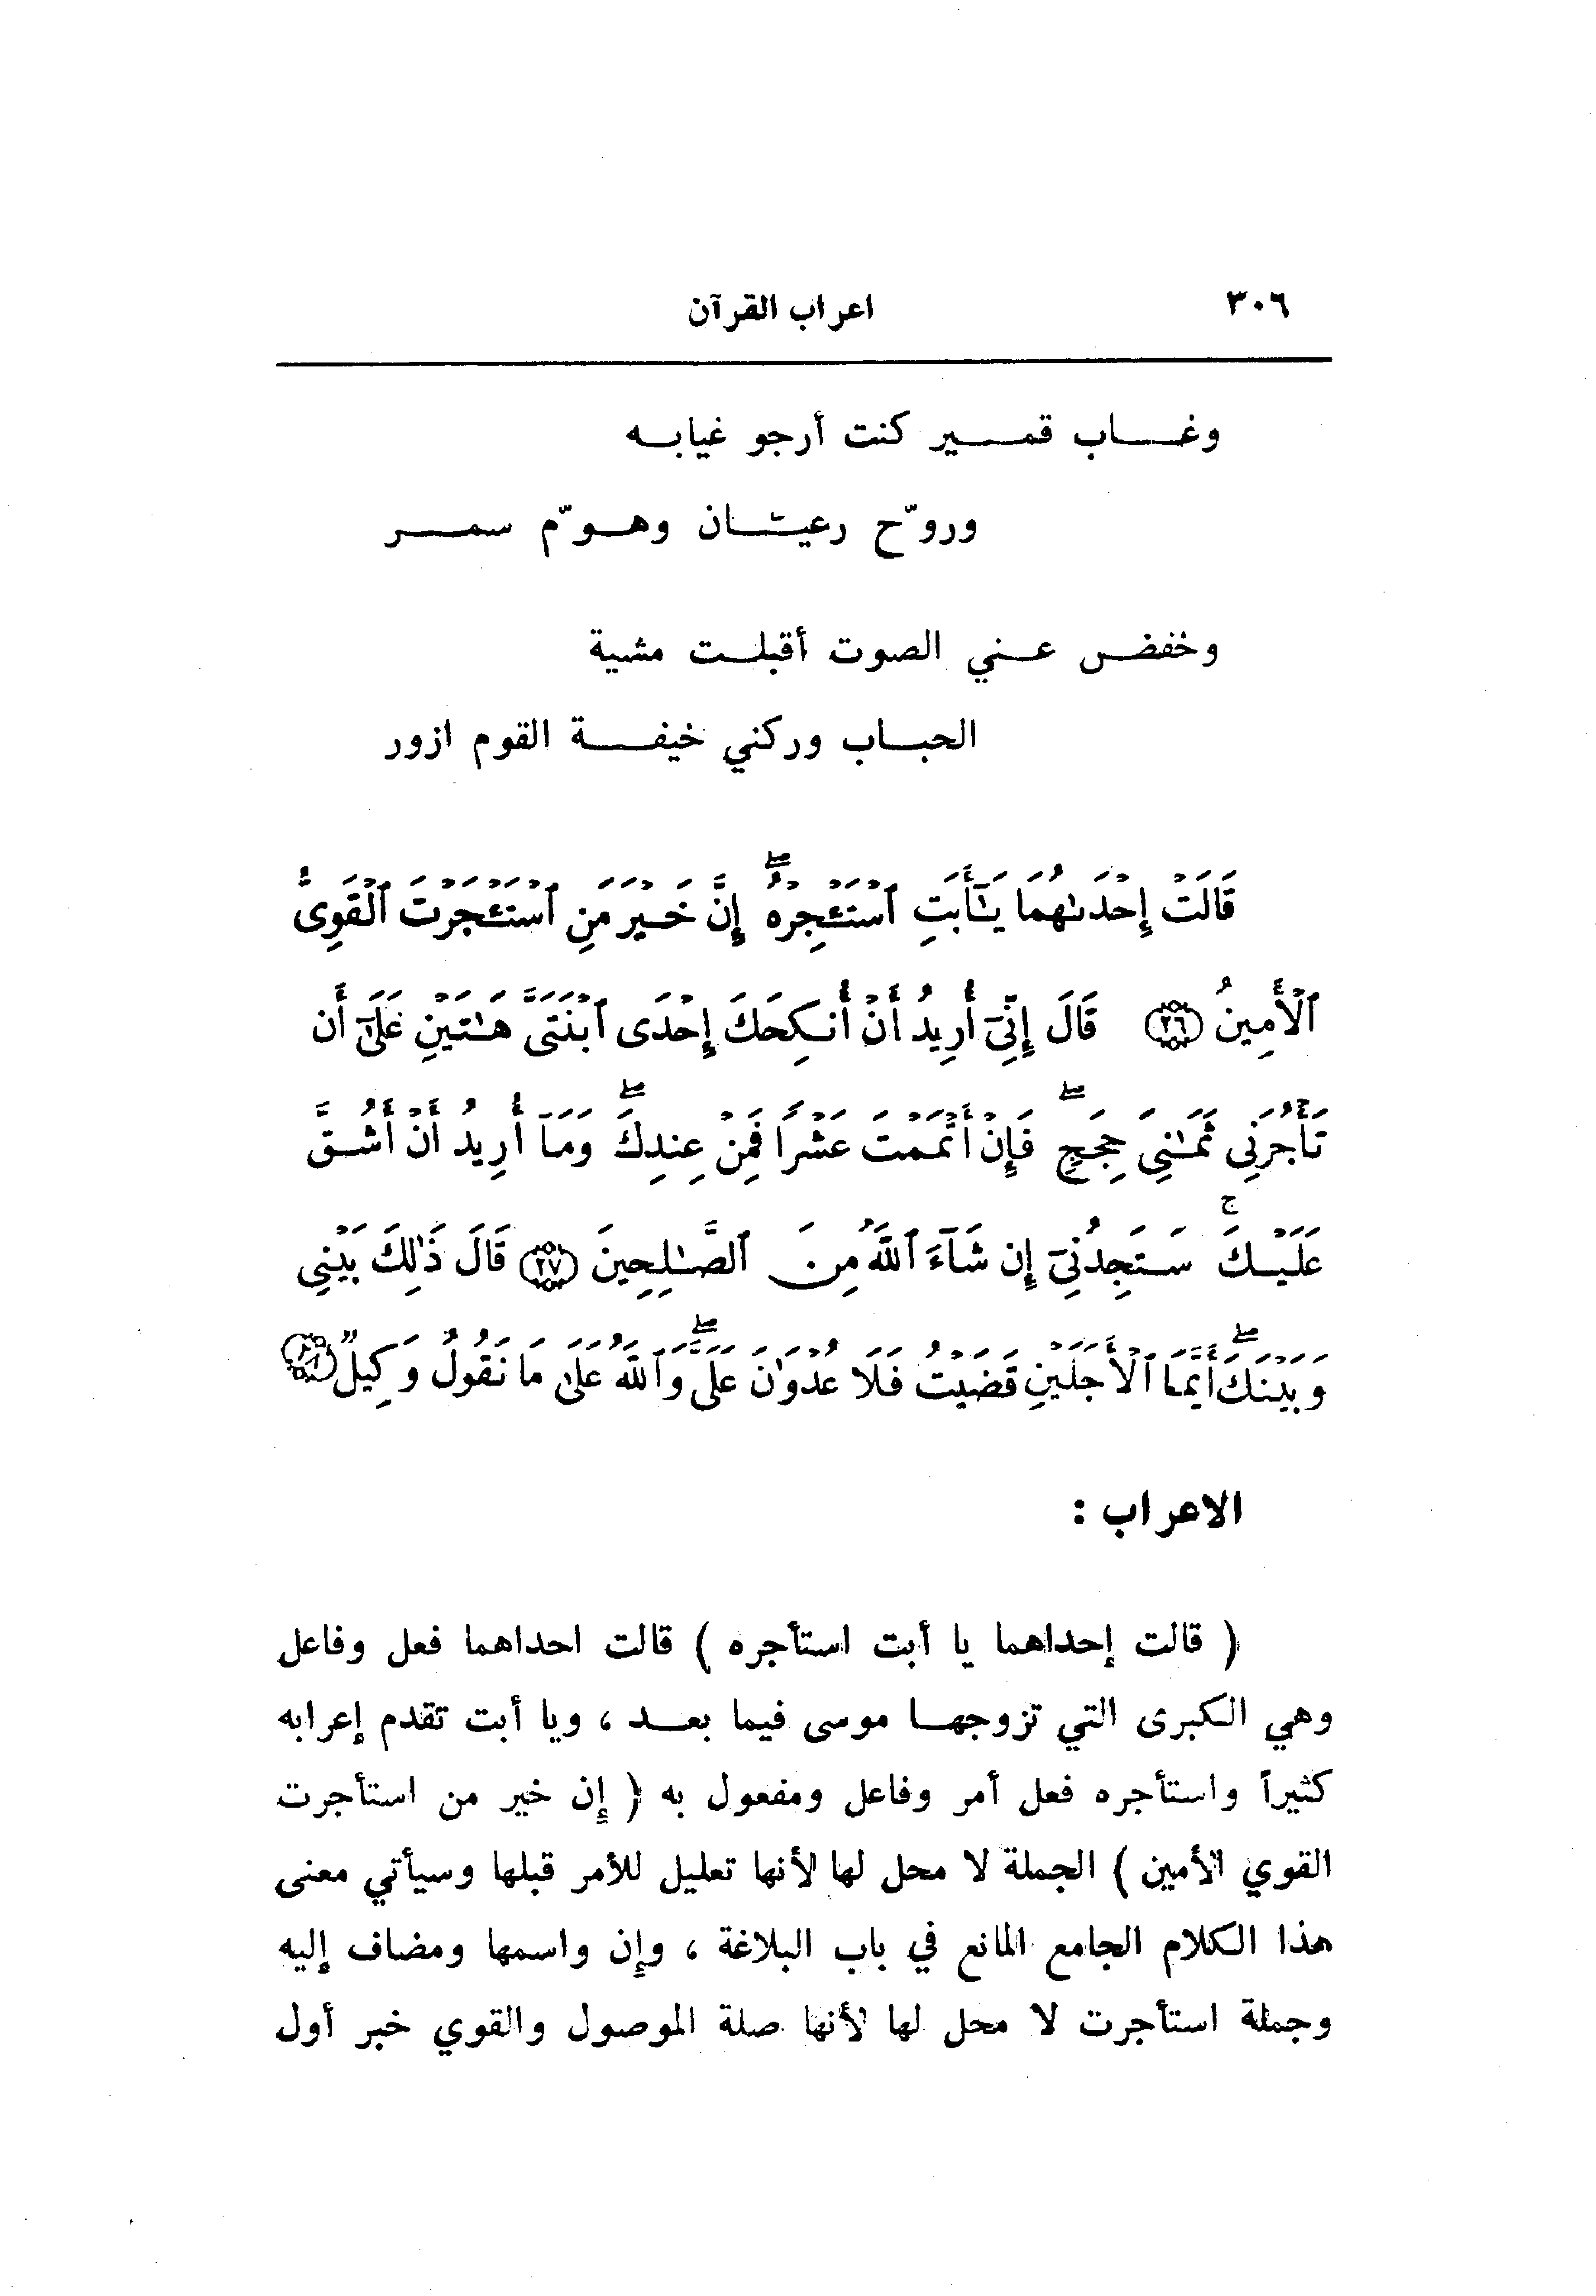 ٣٠٦
اعراب القرآن
وغاب قمير كنت أرجو غيابه
وروّح رعيان وهوّم سمر
وخفض عني الصوت أقبلت مشية
الحباب وركني خيفة القوم ازور
قَالَتْ إِحْدَىٰهُمَا يَـٰٓأَبَتِ ٱسْتَـْٔجِرْهُ ۖ إِنَّ خَيْرَ مَنِ ٱسْتَـْٔجَرْتَ ٱلْقَوِىُّ
ٱلْأَمِينُ ٢٦ قَالَ إِنِّىٓ أُرِيدُ أَنْ أُنكِحَكَ إِحْدَى ٱبْنَتَىَّ هَـٰتَيْنِ عَلَىٰٓ أَن
تَأْجُرَنِى ثَمَـٰنِىَ حِجَجٍ ۖ فَإِنْ أَتْمَمْتَ عَشْرًا فَمِنْ عِندِكَ ۖ وَمَآ أُرِيدُ أَنْ أَشُقَّ
عَلَيْكَ ۚ سَتَجِدُنِىٓ إِن شَآءَ ٱللَّهُ مِنَ ٱلصَّـٰلِحِينَ ٢٧ قَالَ ذَٰلِكَ بَيْنِى
وَبَيْنَكَ ۖ أَيَّمَا ٱلْأَجَلَيْنِ قَضَيْتُ فَلَا عُدْوَٰنَ عَلَىَّ ۖ وَٱللَّهُ عَلَىٰ مَا نَقُولُ وَكِيلٌ ٢٨
الاعراب :
( قالت إحداهما يا أبت استأجره ) قالت احداهما فعل وفاعل
وهي الكبرى التي تزوجها موسى فيما بعد ، ويا أبت تقدم إعرابه
كثيراً واستأجره فعل أمر وفاعل ومفعول به ( إن خير من استأجرت
القوي الأمين ) الجملة لا محل لها لأنها تعليل للأمر قبلها وسيأتي معنى
هذا الكلام الجامع المانع في باب البلاغة ، وإن واسمها ومضاف إليه
وجملة استأجرت لا محل لها لأنها صلة الموصول والقوي خبر أول